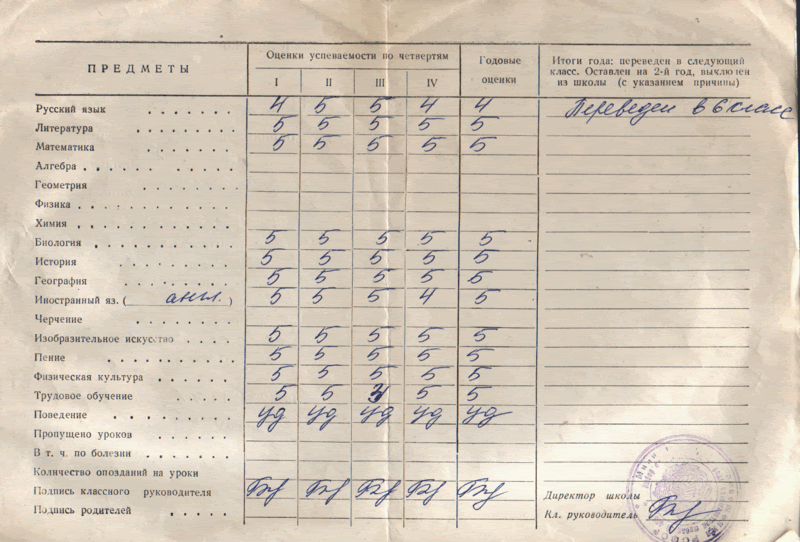 ПРЕДМЕТЫ Оценки успеваемости по четвертям Годовые оценки Итоги года: переведен в следующий
I II III IV класс. Оставлен на 2-й год, выключен
из школы (с указанием причины)
Русский язык 4 5 5 4 4 Переведен в 6 класс
Литература 5 5 5 5 5
Математика 5 5 5 5 5
Алгебра
Геометрия
Физика
Химия
Биология 5 5 5 5 5
История 5 5 5 5 5
География 5 5 5 5 5
Иностранный яз. (англ.) 5 5 5 4 5
Черчение
Изобразительное искусство 5 5 5 5 5
Пение 5 5 5 5 5
Физическая культура 5 5 5 5 5
Трудовое обучение 5 5 3 5 5
Поведение уд уд уд уд уд
Пропущено уроков
В т. ч. по болезни
Количество опозданий на уроки
Подпись классного руководителя
Директор школы
Подпись родителей
Кл. руководитель